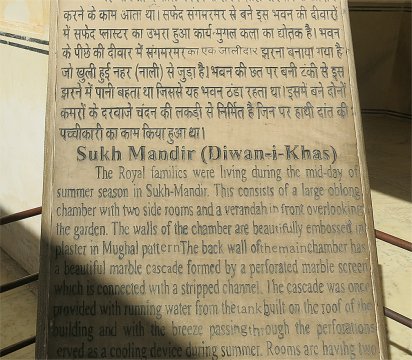 करने के काम आता था। सफेद संगमरमर से बने इस भवन की दीवारों
में सफेद प्लास्टर का उभरा हुआ कार्य-मुगल कला का द्योतक है। भवन
के पीछे की दीवार में संगमरमर का एक जालीदार झरना बनाया गया है
जो खुली हुई नहर (नाली) से जुड़ा है। भवन की छत पर बनी टंकी से इस
झरने में पानी बहता था जिससे यह भवन ठंडा रहता था। इसमें बने दोनों
कमरों के दरवाजे चंदन की लकड़ी से निर्मित है जिन पर हाथी दांत की
पच्चीकारी का काम किया हुआ था।
Sukh Mandir (Diwan-i-Khas)
The Royal families were living during the mid-day of
summer season in Sukh-Mandir. This consists of a large oblong
chamber with two side rooms and a verandah in front overlooking
the garden. The walls of the chamber are beautifully embossed in
plaster in Mughal pattern The back wall of the main chamber has
a beautiful marble cascade formed by a perforated marble screen
which is connected with a stripped channel. The cascade was once
provided with running water from the tank built on the roof of the
building and with the breeze passing through the perforations
erved as a cooling device during summer. Rooms are having two